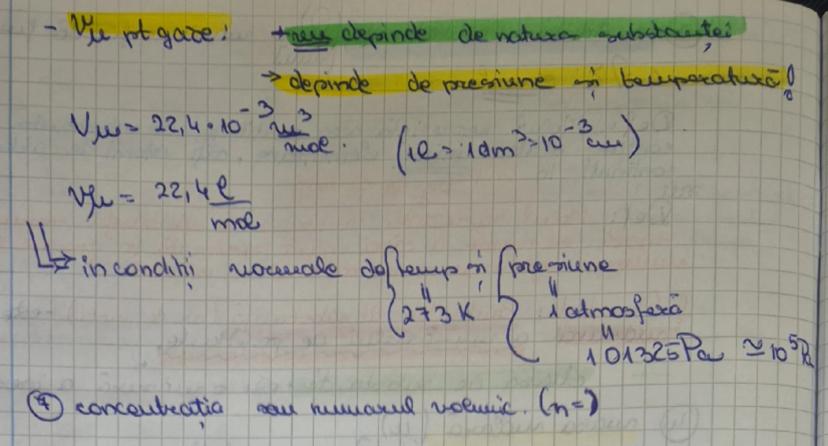 - Vμ pt gaze: → nu depinde de natura substanței
→ depinde de presiune și temperatură!
Vμ = 22,4 · 10⁻³ m³/mol. (1l = 1dm³ = 10⁻³ cm)
Vμ = 22,4 l/mol
în condiții normale de temp și presiune
273 K 1 atmosferă
101325 Pa ≃ 10⁵ Pa
⑦ concentrația sau numărul volumic. (n=)